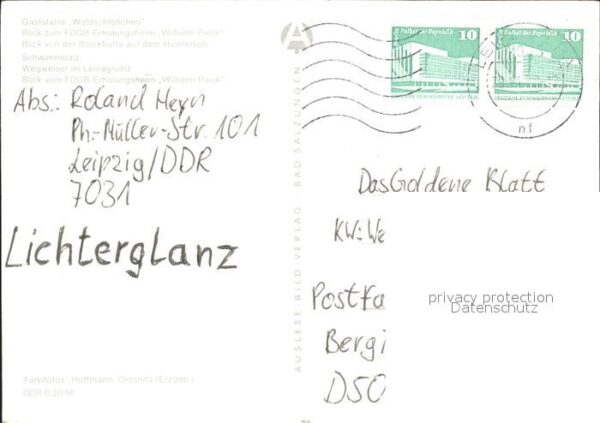 Gaststätte "Waldschlößchen"
Blick zum FDGB-Erholungsheim "Wilhelm Pieck"
Blick von der Blockhütte auf dem Hainfelsen
Schwimmbad
Wegweiser im Leinagrund
Blick vom FDGB-Erholungsheim "Wilhelm Pieck"
Abs.: Roland Meyn
Ph.-Müller-Str. 101
Leipzig/DDR
7031
Lichterglanz
Farbfotos: Hoffmann, Oelsnitz (Erzgeb.)
DDR 0,20 M
AUSLESE-BILD-VERLAG · BAD SALZUNGEN
Palast der Republik
10
10
nf
Das Goldene Blatt
KW: We
Postfa
Bergi
D50
privacy protection
Datenschutz